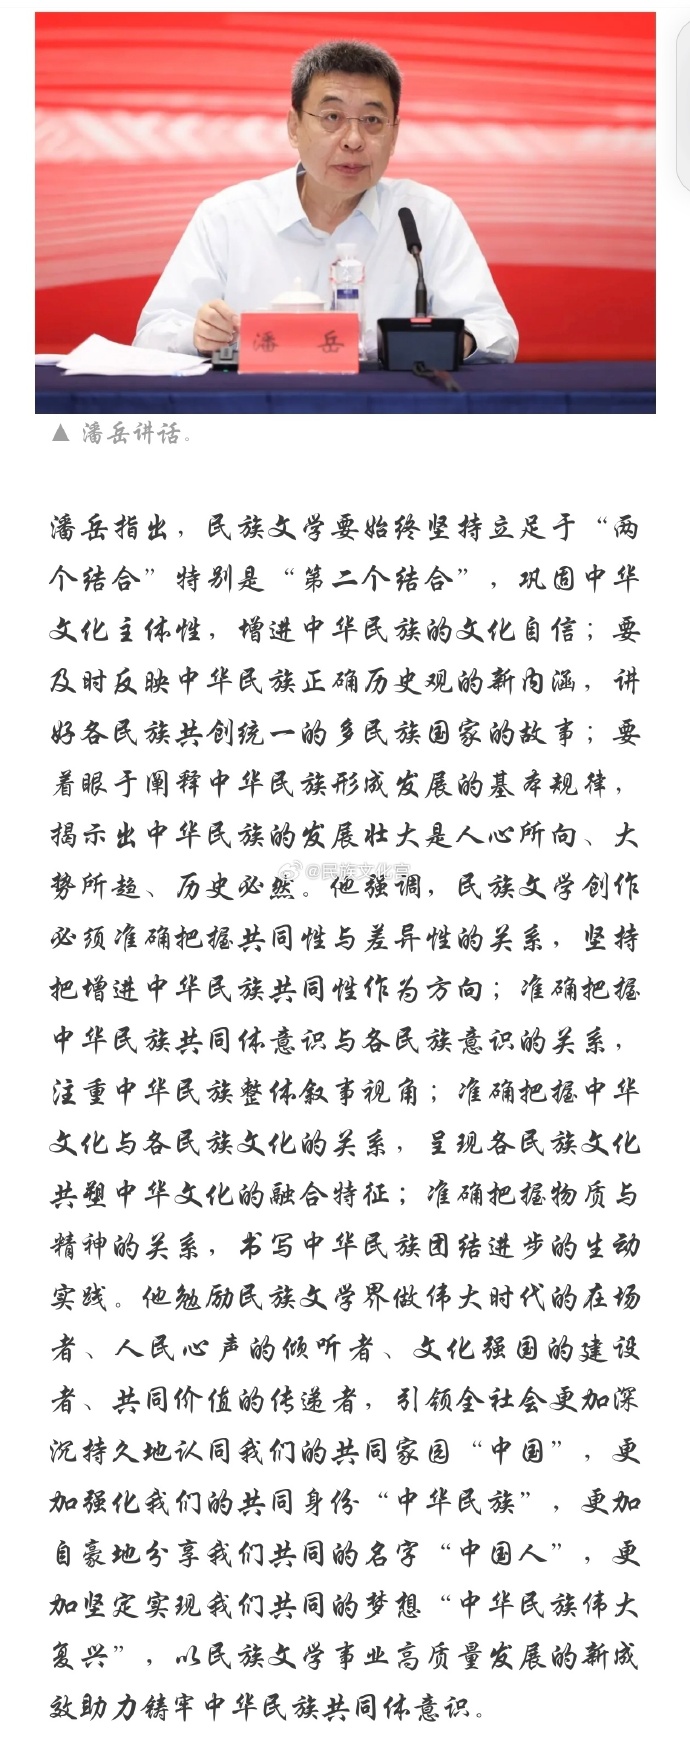 潘 岳
▲ 潘岳讲话。
潘岳指出，民族文学要始终坚持立足于“两
个结合”特别是“第二个结合”，巩固中华
文化主体性，增进中华民族的文化自信；要
及时反映中华民族正确历史观的新内涵，讲
好各民族共创统一的多民族国家的故事；要
着眼于阐释中华民族形成发展的基本规律，
揭示出中华民族的发展壮大是人心所向、大
势所趋、历史必然。他强调，民族文学创作
@民族文化宫
必须准确把握共同性与差异性的关系，坚持
把增进中华民族共同性作为方向；准确把握
中华民族共同体意识与各民族意识的关系，
注重中华民族整体叙事视角；准确把握中华
文化与各民族文化的关系，呈现各民族文化
共塑中华文化的融合特征；准确把握物质与
精神的关系，书写中华民族团结进步的生动
实践。他勉励民族文学界做伟大时代的在场
者、人民心声的倾听者、文化强国的建设
者、共同价值的传递者，引领全社会更加深
沉持久地认同我们的共同家园“中国”，更
加强化我们的共同身份“中华民族”，更加
自豪地分享我们共同的名字“中国人”，更
加坚定实现我们共同的梦想“中华民族伟大
复兴”，以民族文学事业高质量发展的新成
效助力铸牢中华民族共同体意识。